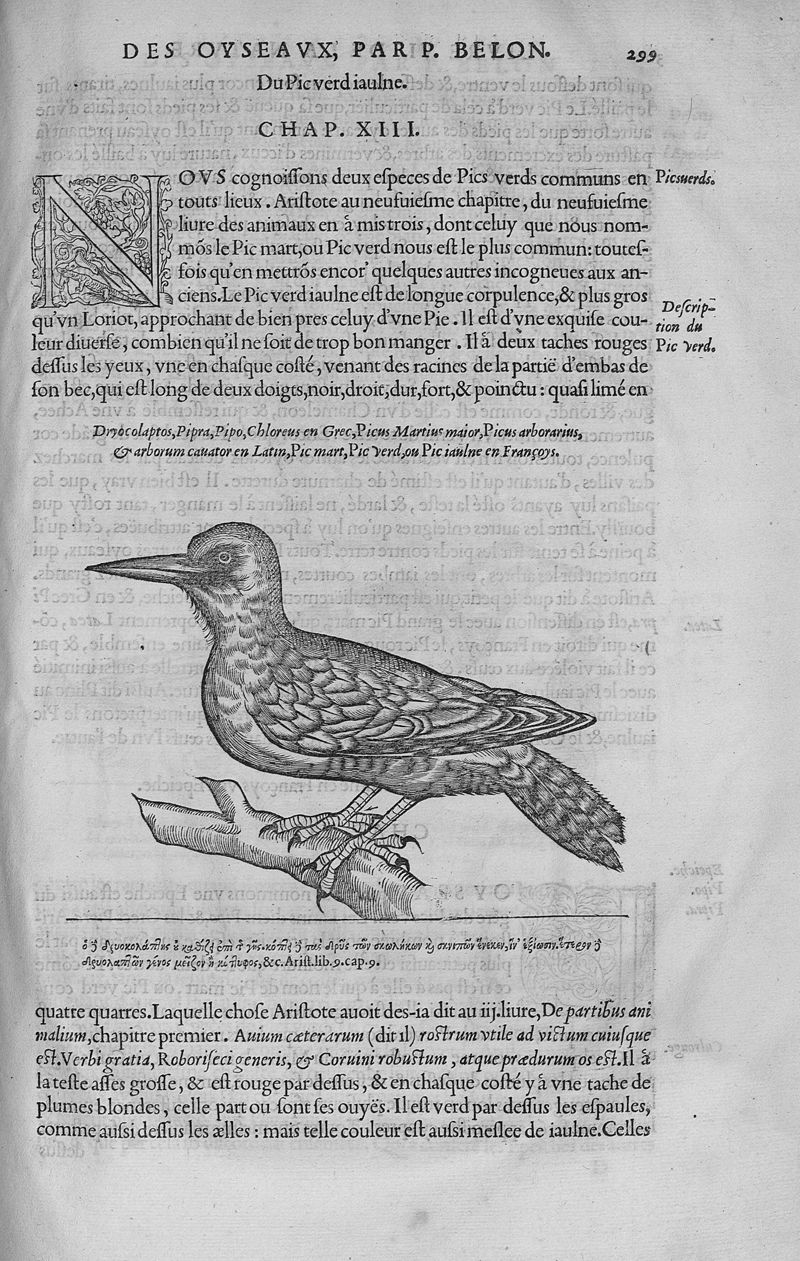 DES OYSEAVX, PAR P. BELON. 299
Du Pic verd iaulne.
CHAP. XIII.
NOVS cognoiſſons deux eſpeces de Pics verds communs en
touts lieux. Ariſtote au neufuieſme chapitre, du neufuieſme
liure des animaux en à mis trois, dont celuy que nous nom-
mõs le Pic mart, ou Pic verd nous eſt le plus commun: touteſ-
fois qu'en mettrõs encor' quelques autres incogneues aux an-
ciens. Le Pic verd iaulne eſt de longue corpulence, & plus gros
qu'vn Loriot, approchant de bien pres celuy d'vne Pie. Il eſt d'vne exquiſe cou-
leur diuerſe, combien qu'il ne ſoit de trop bon manger. Il à deux taches rouges
deſſus les yeux, vne en chaſque coſté, venant des racines de la partie d'embas de
ſon bec, qui eſt long de deux doigts, noir, droit, dur, fort, & poinctu: quaſi limé en
Picsuerds.
Deſcrip-
tion du
Pic verd.
Dryocolaptos, Pipra, Pipo, Chloreus en Grec, Picus Martius maior, Picus arborarius,
& arborum cauator en Latin, Pic mart, Pic verd, ou Pic iaulne en Françoys.
&c. Ariſt. lib. 9. cap. 9.
quatre quarres. Laquelle choſe Ariſtote auoit des-ia dit au iij. liure, De partibus ani
malium, chapitre premier. Auium cæterarum (dit il) roſtrum vtile ad victum cuiuſque
eſt. Verbi gratia, Roboriſeci generis, & Coruini robuſtum, atque prædurum os eſt. Il à
la teſte aſſes groſſe, & eſt rouge par deſſus, & en chaſque coſté y à vne tache de
plumes blondes, celle part ou ſont ſes ouyës. Il eſt verd par deſſus les eſpaules,
comme auſsi deſſus les ælles: mais telle couleur eſt auſsi meſlee de iaulne. Celles